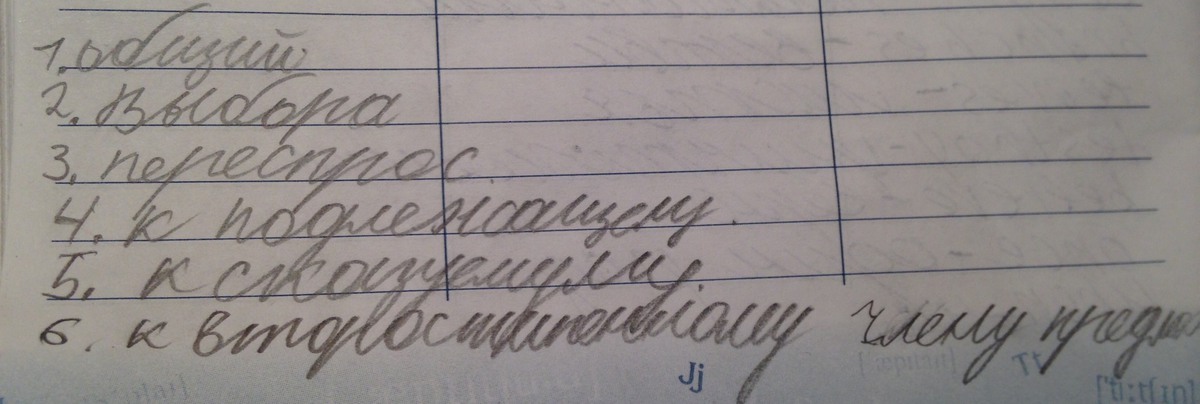 1. общий
2. выбора
3. переспрос.
4. к подлежащему.
5. к сказуемому.
6. к второстепенному члену предло
Jj